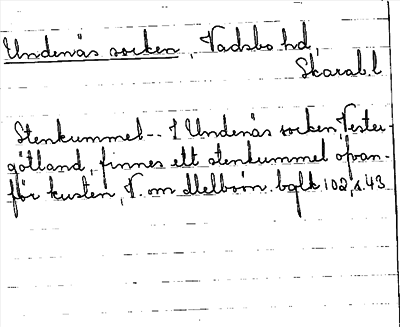 Undenäs socken, Vadsbo hd,
Skarab. l
Stenkummel -- I Undenäs socken, Vester-
götland, finnes ett stenkummel ofvan-
för kusten, V. om Melbom. bglk 102, s. 43